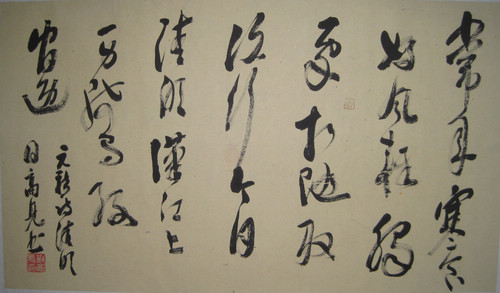 常年寒食
好风輕觸
处相随取
次行今日
清明漢江上
一身騎馬縣
官迎
元稹诗清明
日高見书